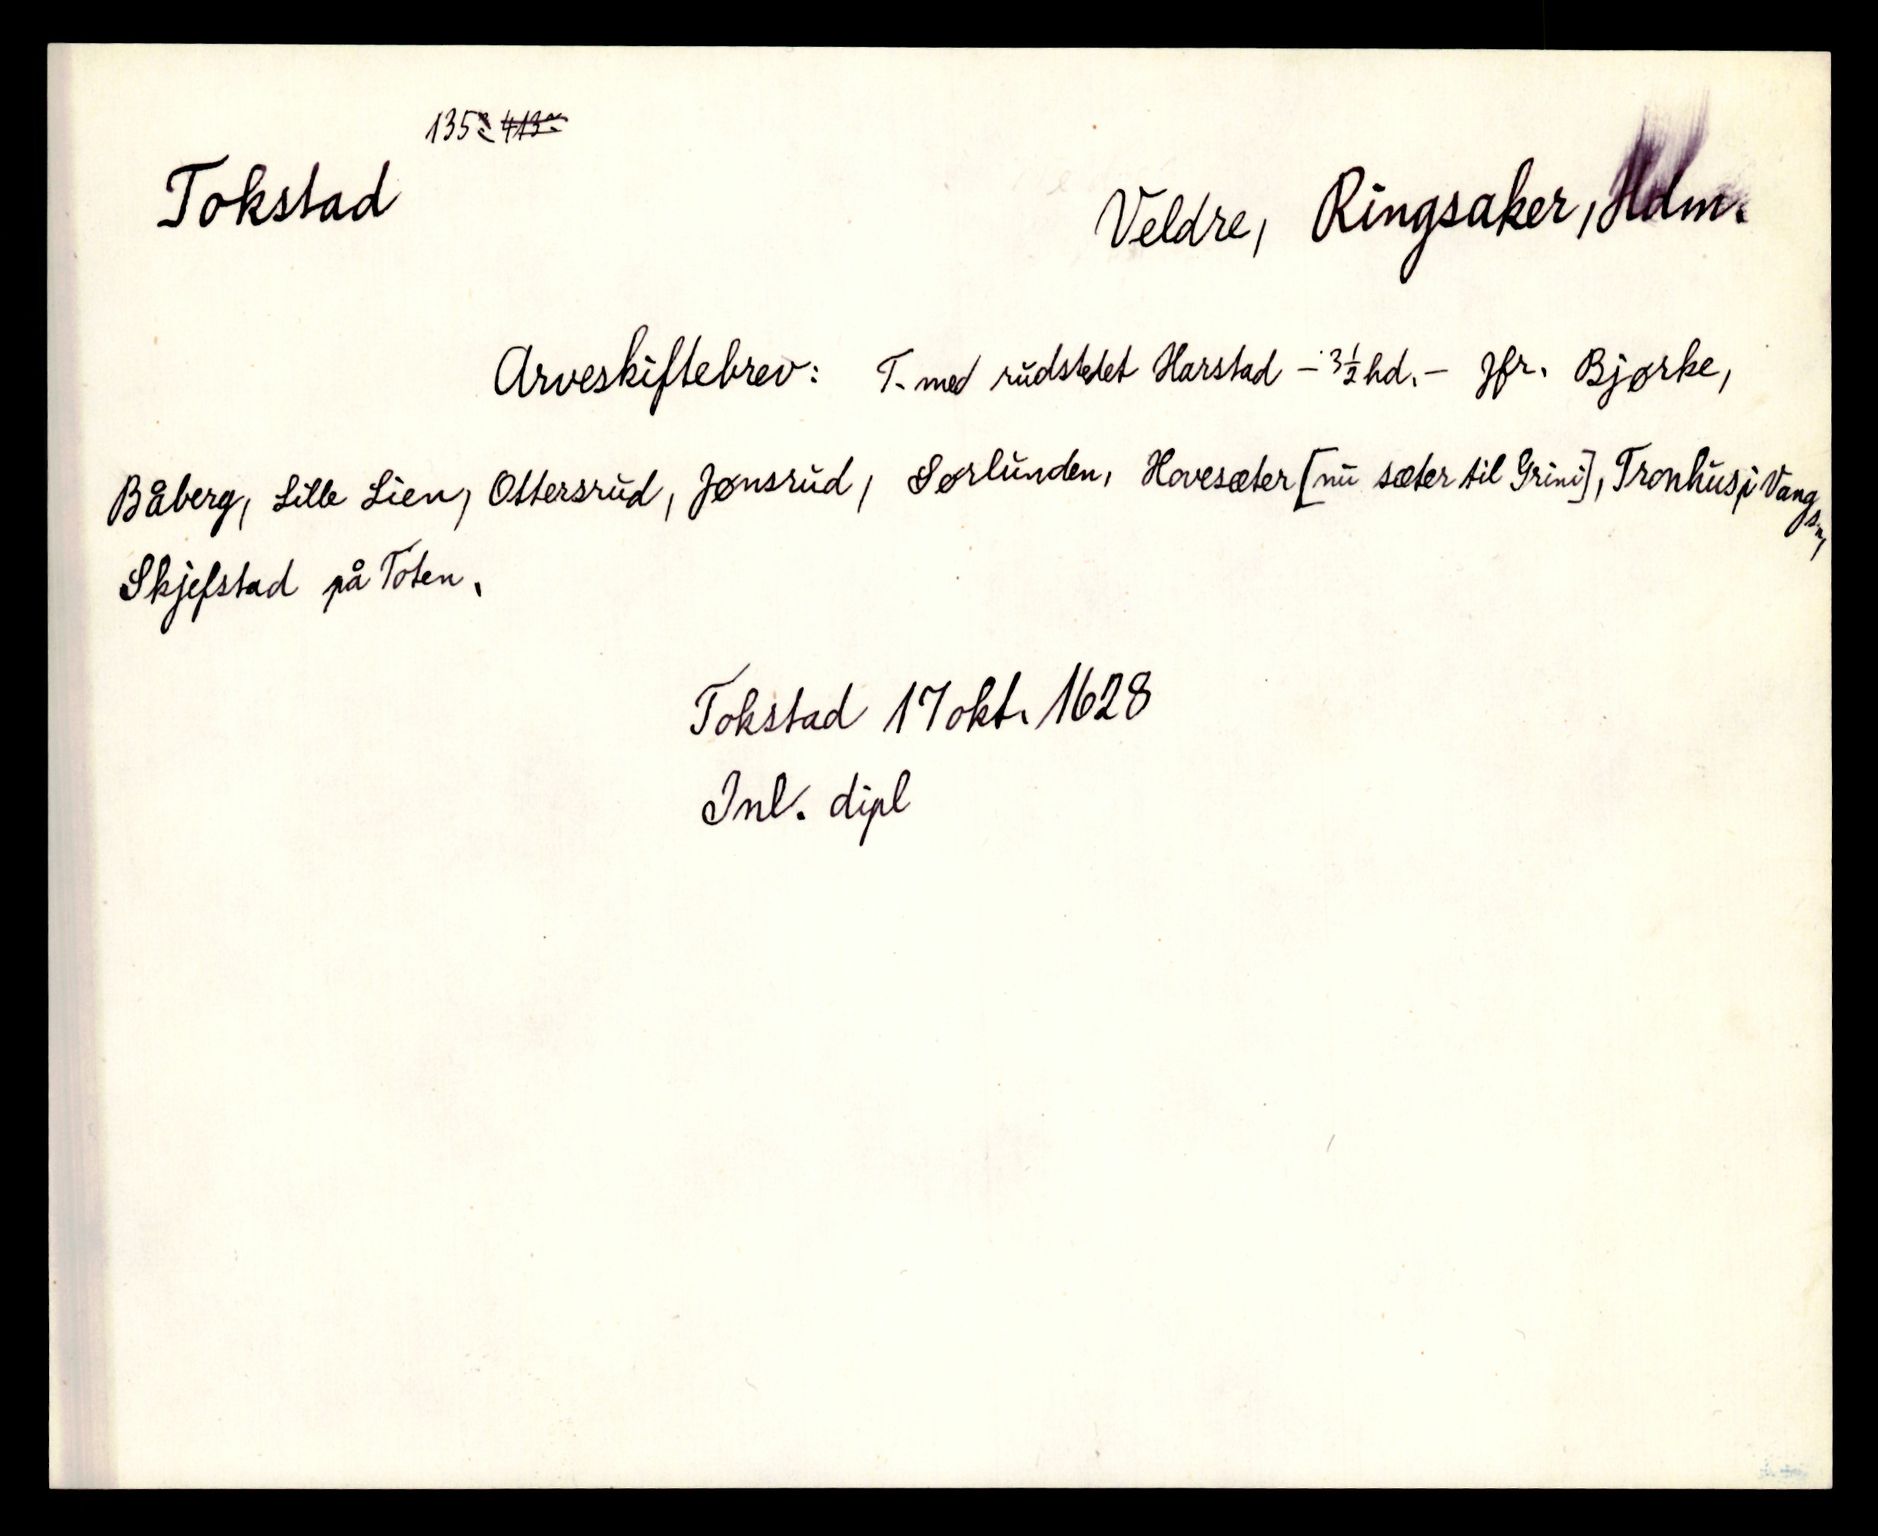 135
Tokstad
Veldre, Ringsaker, Hdm.
Arveskiftebrev: T. med rudstedet Harstad - 3 1/2 hd. - Jfr. Bjørke,
Båberg, Lille Lien, Ottersrud, Jønsrud, Sørlunden, Hovesæter [nu sæter til Grini], Tronhus i Vang
Skjefstad på Toten.
Tokstad 17 okt. 1628
Inl. dipl